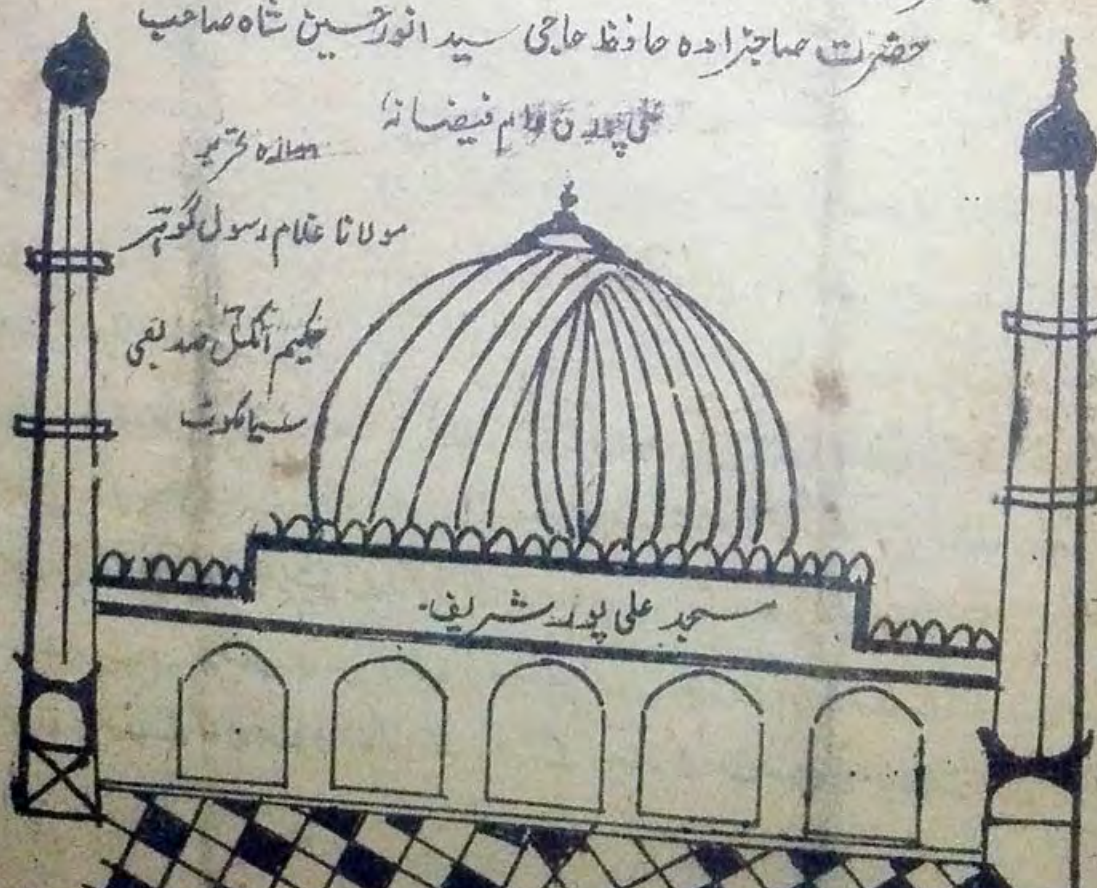 حضرت صاحبزادہ حافظ حاجی سید انور حسین شاہ صاحب
علی پوری دام فیضانہ
مولانا غلام رسول گوہر
حکیم صدیقی
سیالکوٹ
مسجد علی پور شریف۔